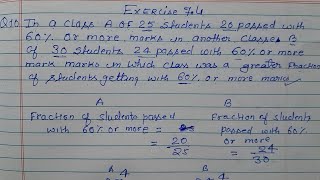 Exercise 7.4
Q10. In a class A of 25 students 20 passed with
60% or more marks in another class B
of 30 students 24 passed with 60% or more
mark marks in which class was a greater fraction
of students getting with 60% or more marks
A
B
Fraction of students passed
with 60% or more = 20/25
Fraction of students
passed with 60%
or more = 24/30
A 4
B 4